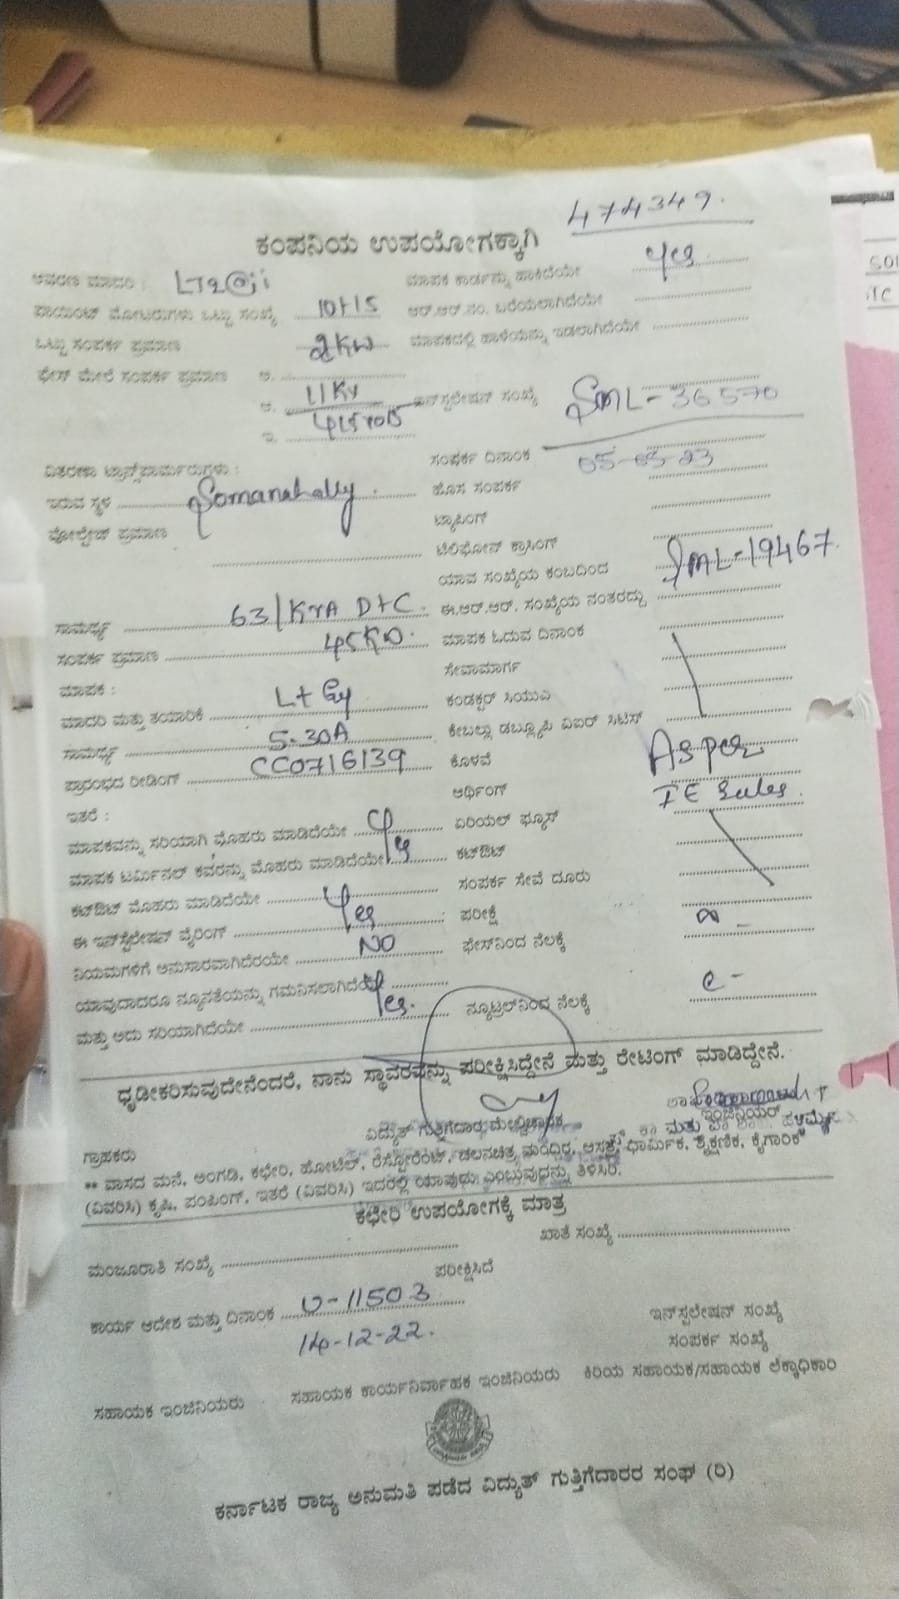 474349.
ಕಂಪನಿಯ ಉಪಯೋಗಕ್ಕಾಗಿ
ಮಾಪಕ ಕಾರ್ಡನ್ನು ಹಾಕಿದೆಯೇ yes
ಪಾಯಿಂಟ್ ಮೋಟರುಗಳು ಒಟ್ಟು ಸಂಖ್ಯೆ 10+15 ಆರ್.ಆರ್.ನಂ. ಬರೆಯಲಾಗಿದೆಯೇ
ಒಟ್ಟು ಸಂಪರ್ಕ ಪ್ರಮಾಣ 2KW ಮಾಪಕದಲ್ಲಿ ಹಾಳೆಯನ್ನು ಇಡಲಾಗಿದೆಯೇ
ಫೇಸ್ ಮೇಲೆ ಸಂಪರ್ಕ ಪ್ರಮಾಣ ಅ.
ಆ. 11KV ಇನ್‌ಸ್ಟಲೇಷನ್ ಸಂಖ್ಯೆ SML-36570
ಇ.
ವಿತರಣಾ ಟ್ರಾನ್ಸ್‌ಫಾರ್ಮರುಗಳು : ಸಂಪರ್ಕ ದಿನಾಂಕ 05-05-23
ಇರುವ ಸ್ಥಳ Somanahally. ಹೊಸ ಸಂಪರ್ಕ
ವೋಲ್ಟೇಜ್ ಪ್ರಮಾಣ ಟ್ಯಾಪಿಂಗ್
ಟೆಲಿಫೋನ್ ಕ್ರಾಸಿಂಗ್
ಯಾವ ಸಂಖ್ಯೆಯ ಕಂಬದಿಂದ SML-19467.
ಸಾಮರ್ಥ್ಯ 63/KVA DTC. ಈ.ಆರ್.ಆರ್. ಸಂಖ್ಯೆಯ ನಂತರದ್ದು
ಸಂಪರ್ಕ ಪ್ರಮಾಣ ಮಾಪಕ ಓದುವ ದಿನಾಂಕ
ಮಾಪಕ : ಸೇವಾಮಾರ್ಗ
ಮಾದರಿ ಮತ್ತು ತಯಾರಿಕೆ ಕಂಡಕ್ಟರ್ ಸಿಯುವಿ
ಸಾಮರ್ಥ್ಯ 5-30A ಕೇಬಲ್ಲು ಡಬ್ಲ್ಯೂಪಿ ವಿಐಆರ್ ಸಿಟಿಸ್
ಪ್ರಾರಂಭದ ರೀಡಿಂಗ್ CC0716139 ಕೊಳವೆ As per
ಇತರೆ : ಅರ್ಥಿಂಗ್ IE Rules.
ಮಾಪಕವನ್ನು ಸರಿಯಾಗಿ ಮೊಹರು ಮಾಡಿದೆಯೇ ಏರಿಯಲ್ ಫ್ಯೂಸ್
ಮಾಪಕ ಟರ್ಮಿನಲ್ ಕವರನ್ನು ಮೊಹರು ಮಾಡಿದೆಯೇ yes ಕಟ್‌ಔಟ್
ಕಟ್‌ಔಟ್ ಮೊಹರು ಮಾಡಿದೆಯೇ ಸಂಪರ್ಕ ಸೇವೆ ದೂರು
ಈ ಇನ್‌ಸ್ಟಲೇಷನ್ ವೈರಿಂಗ್ yes ಪರೀಕ್ಷೆ
ನಿಯಮಗಳಿಗೆ ಅನುಸಾರವಾಗಿದೆರಯೇ NO ಫೇಸ್‌ನಿಂದ ನೆಲಕ್ಕೆ
ಯಾವುದಾದರೂ ನ್ಯೂನತೆಯನ್ನು ಗಮನಿಸಲಾಗಿದೆಯೇ
ಮತ್ತು ಅದು ಸರಿಯಾಗಿದೆಯೇ yes. ನ್ಯೂಟ್ರಲ್‌ನಿಂದ ನೆಲಕ್ಕೆ
ಧೃಡೀಕರಿಸುವುದೇನೆಂದರೆ, ನಾನು ಸ್ಥಾವರವನ್ನು ಪರೀಕ್ಷಿಸಿದ್ದೇನೆ ಮತ್ತು ರೇಟಿಂಗ್ ಮಾಡಿದ್ದೇನೆ.
ಗ್ರಾಹಕರು ವಿದ್ಯುತ್ ಗುತ್ತಿಗೆದಾರ ಮೇಲ್ವಿಚಾರಕ ಇಂಜಿನಿಯರ್
** ವಾಸದ ಮನೆ, ಅಂಗಡಿ, ಕಛೇರಿ, ಹೋಟೆಲ್, ರೆಸ್ಟೋರೆಂಟ್, ಚಲನಚಿತ್ರ ಮಂದಿರ, ಆಸತ್ರೆ, ಧಾರ್ಮಿಕ, ಶೈಕ್ಷಣಿಕ, ಕೈಗಾರಿಕೆ
(ವಿವರಿಸಿ) ಕೃಷಿ, ಪಂಪಿಂಗ್, ಇತರೆ (ವಿವರಿಸಿ) ಇದರಲ್ಲಿ ಯಾವುದು ಎಂಬುವುದನ್ನು ತಿಳಿಸಿರಿ.
ಕಛೇರಿ ಉಪಯೋಗಕ್ಕೆ ಮಾತ್ರ
ಮಂಜೂರಾತಿ ಸಂಖ್ಯೆ ಖಾತೆ ಸಂಖ್ಯೆ
ಪರೀಕ್ಷಿಸಿದೆ
ಕಾರ್ಯ ಆದೇಶ ಮತ್ತು ದಿನಾಂಕ U-11503
14-12-22.
ಇನ್‌ಸ್ಟಲೇಷನ್ ಸಂಖ್ಯೆ
ಸಂಪರ್ಕ ಸಂಖ್ಯೆ
ಸಹಾಯಕ ಇಂಜಿನಿಯರು ಸಹಾಯಕ ಕಾರ್ಯನಿರ್ವಾಹಕ ಇಂಜಿನಿಯರು ಕಿರಿಯ ಸಹಾಯಕ/ಸಹಾಯಕ ಲೆಕ್ಕಾಧಿಕಾರಿ
ಕರ್ನಾಟಕ ರಾಜ್ಯ ಅನುಮತಿ ಪಡೆದ ವಿದ್ಯುತ್ ಗುತ್ತಿಗೆದಾರರ ಸಂಘ (ರಿ)